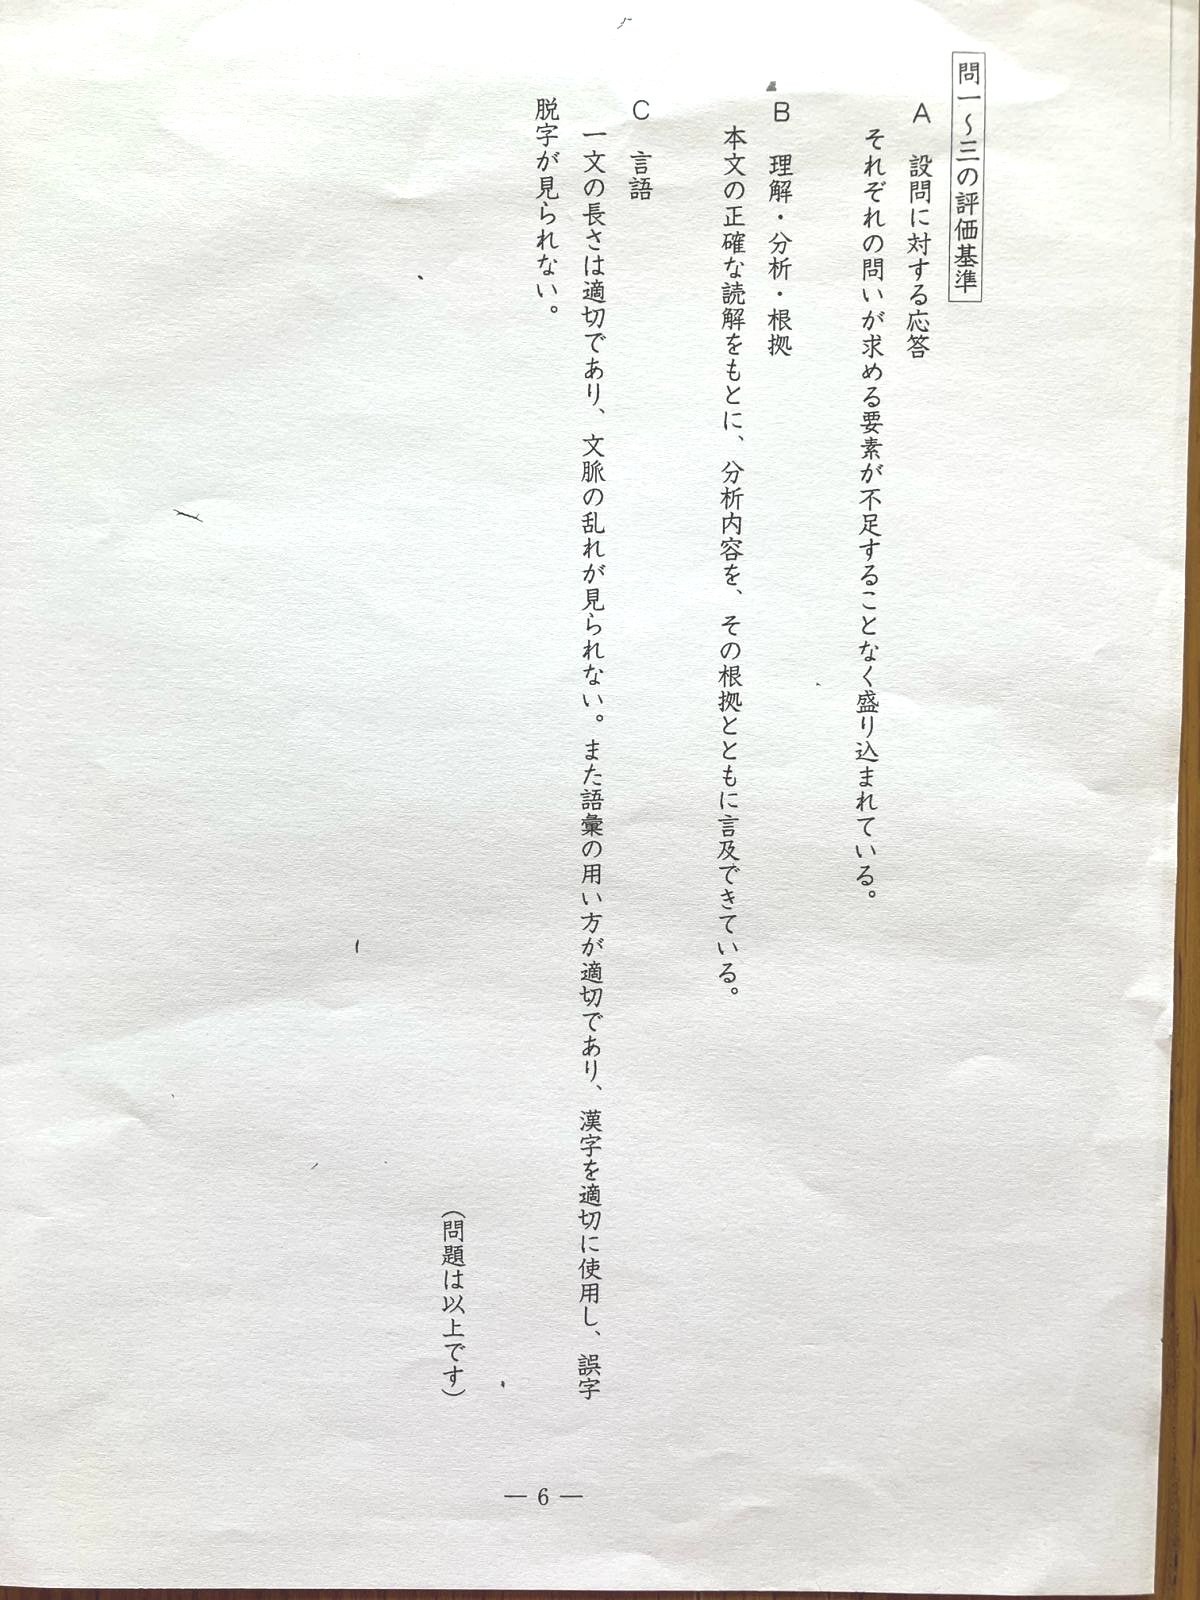 問一～三の評価基準
A 設問に対する応答
それぞれの問いが求める要素が不足することなく盛り込まれている。
B 理解・分析・根拠
本文の正確な読解をもとに、分析内容を、その根拠とともに言及できている。
C 言語
一文の長さは適切であり、文脈の乱れが見られない。また語彙の用い方が適切であり、漢字を適切に使用し、誤字
脱字が見られない。
（問題は以上です）
— 6 —